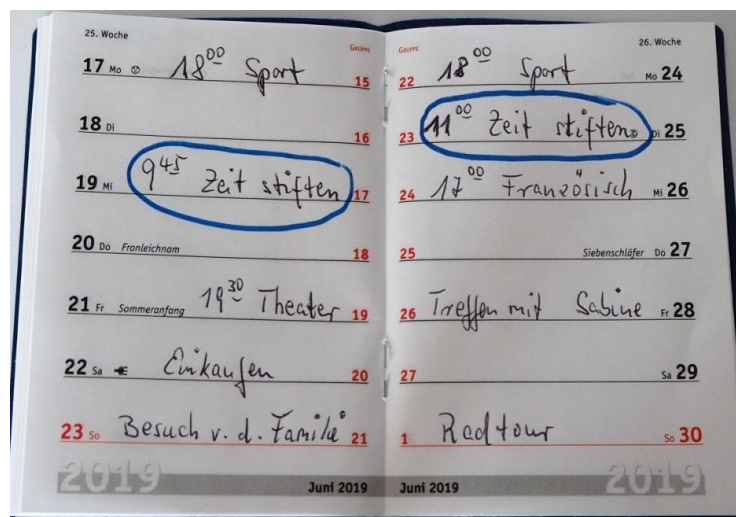 25. Woche
GRUPPE
17 Mo 18⁰⁰ Sport 15
18 Di 16
19 Mi 9⁴⁵ Zeit stiften 17
20 Do Fronleichnam 18
21 Fr Sommeranfang 19³⁰ Theater 19
22 Sa Einkaufen 20
23 So Besuch v. d. Familie 21
2019
Juni 2019
26. Woche
GRUPPE
22 18⁰⁰ Sport Mo 24
23 11⁰⁰ Zeit stiften Di 25
24 17⁰⁰ Französisch Mi 26
25 Siebenschläfer Do 27
26 Treffen mit Sabine Fr 28
27 Sa 29
1 Radtour So 30
2019
Juni 2019